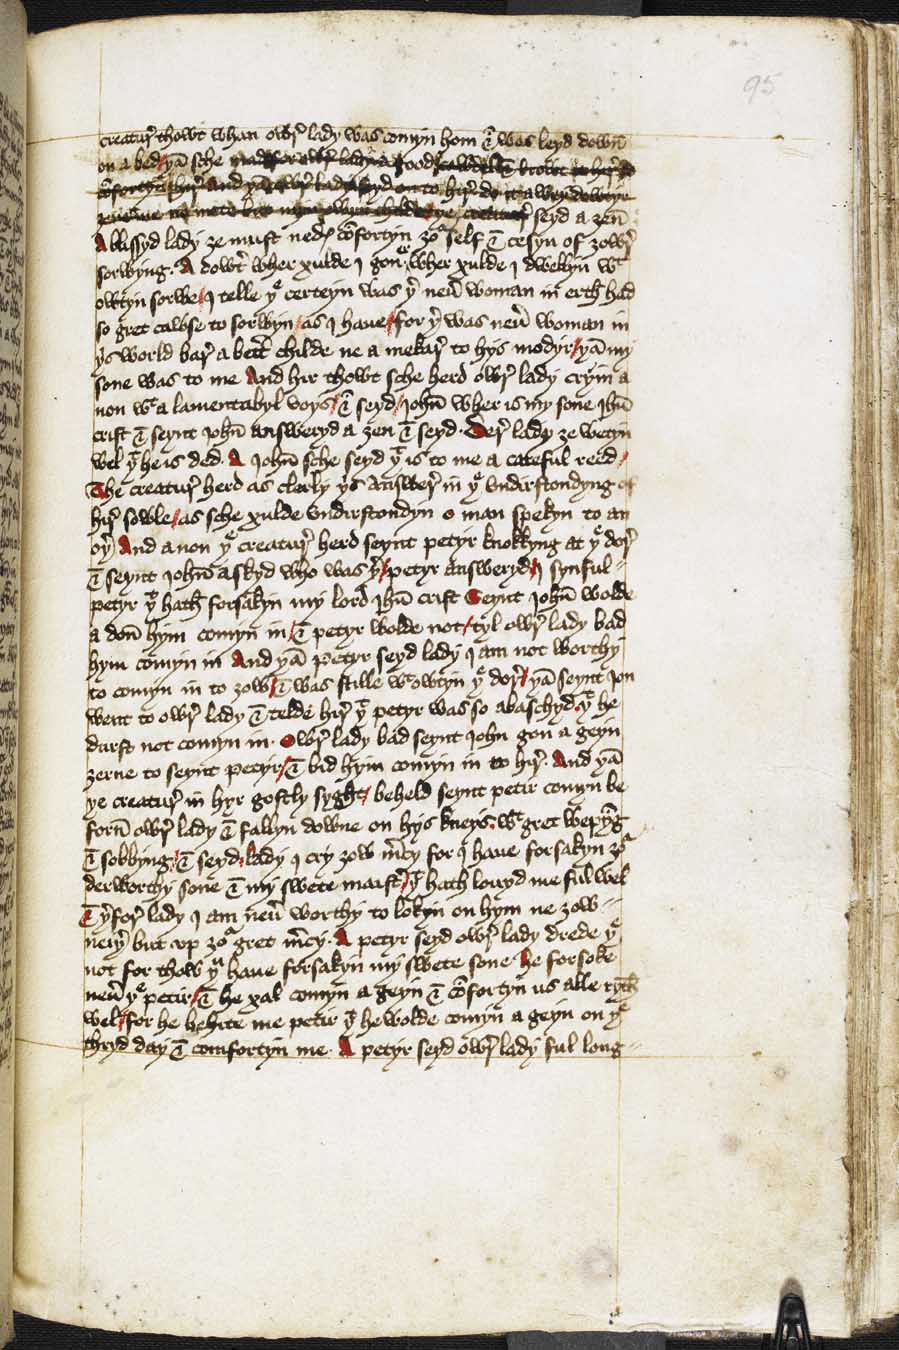 95
creatur̛ thowt whan owr̛ lady was comyn hom & was leyd down̄
on a bed / þā sche mad for owr̛ lady a good cawdel & browt it hir̛ to
cōfortyn hir̛ And þā owr̛ lady seyd on to hir̛ do it a wey dowtyr
ȝeue me no mete but myn owyn childe / þe creatur̛ seyd a ȝen
A blissyd lady ȝe must nedys cōfortyn ȝoʳ self & cesyn of ȝowr̛
sorwyng . A dowtr̛ wher xulde I gon er wher xulde I dwellyn wᵗ
owtyn sorwe / I telle þᵉ certeyn was þʳ neư woman in erth had
so gret cawse to sorwyn / as I haue / for þʳ was neư woman in
þis world bar̛ a bettʳ childe ne a mekar̛ to hys modyr / þā my
sone was to me And hir thowt sche herd owr̛ lady cryin a
non wᵗ a lamentabyl voys / & seyd / John̄ wher is my sone Jhū
crist & seynt John̄ answeryd a ȝen & seyd . Der̛ lady ȝe wetyn
wel þᵗ he is ded . A John̄ sche seyd þᵗ is to me a careful reed /
The creatur̛ herd as clerly þis answer̛ in þᵉ vndirstondyng of
hir̛ sowle / as sche xulde vndirstondyn o man spekyn to an
oþʳ And a non þᵉ creatur̛ herd seynt petyr knokkyng at þᵉ dor̛
& seynt John̄ askyd who was þʳ / petyr answeryd / I synful
petyr þᵗ hath forsakyn my lord Jhū crist Seynt John̄ wolde
a don̄ hym comyn in / & petyr wolde not / tyl owr̛ lady bad
hym comyn in And þā petyr seyd lady I am not worthy
to comyn in to ȝow / & was stille wᵗ owtyn þᵉ dor̛ / þā seynt Jon
went to owr̛ lady & telde hir̛ þᵗ petyr was so abaschyd þᵗ he
durst not comyn in . Owr̛ lady bad seynt John gon a geyn
ȝerne to seynt petyr / & bid hym comyn in to hir̛ . And þā
þe creatur̛ in hyr gostly syght / beheld seynt petir comyn be
forn̄ owr̛ lady & fallyn downe on hys kneys . wᵗ gret wepyng
& sobbyng / & seyd / lady I cry ȝow mʳcy for I haue forsakyn ȝoʳ
derworthy sone & my swete maistʳ / þᵗ hath louyd me ful wel
& þʳfor̛ lady I am neư worthy to lokyn on hym ne ȝow
neiþʳ but vp ȝoʳ gret mʳcy . A petyr seyd owr̛ lady drede þᵉ
not for thow þᵘ haue forsakyn my swete sone he forsoke
neư þᵉ petir / & he xal comyn a geyn & cōfortyn us alle ryth
wel / for he behite me petir þᵗ he wolde comyn a geyn on þᵉ
thryd day & comfortyn me . A petyr seyd owr̛ lady ful long